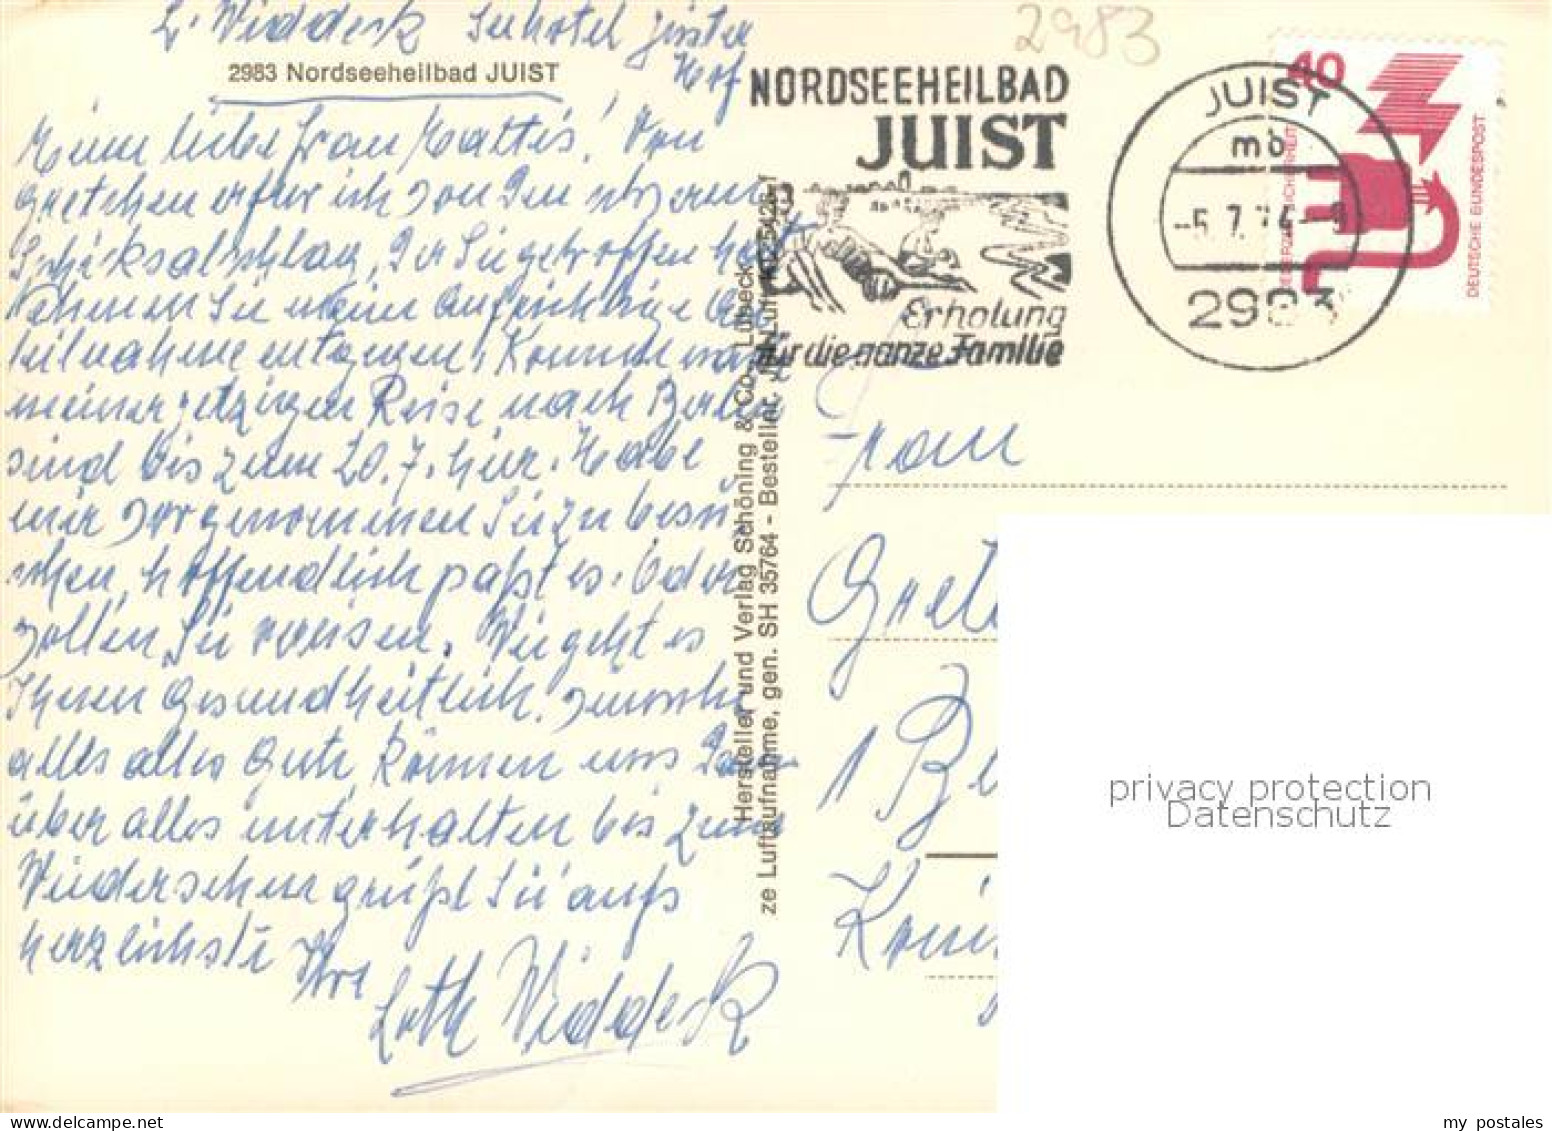 L. Widdeck Seehotel Juister
Hof
2983 Nordseeheilbad JUIST
Meine liebe Frau Mattis! Von
Gretchen erfuhr ich von den schweren
Schicksalschlag, der Sie getroffen hat
Nehmen Sie meine aufrichtige An
teilnahme entgegen! Komme nach
meiner jetzigen Reise nach Berlin
sind bis zum 20.7. hier. Habe
mir vorgenommen Sie zu besu
chen, hoffendlich paßt es. Oder
wollen Sie reisen. Wie geht es
Ihnen Gesundheitlich. Wünsche
alles alles Gute können uns dann
über alles unterhalten bis zum
Wiedersehen grüßt Sie aufs
herzlichste Ihre
Loth Widdeck
Hersteller und Verlag Schöning & Co., Lübeck
ze Luftaufnahme, gen. SH 35764 - Bestellnr.
2983
NORDSEEHEILBAD
JUIST
Erholung
für die ganze Familie
JUIST
mb
-5.7.74-9
2983
40
DEUTSCHE BUNDESPOST
Frau
Grete
1 Be
privacy protection
Datenschutz
my postales